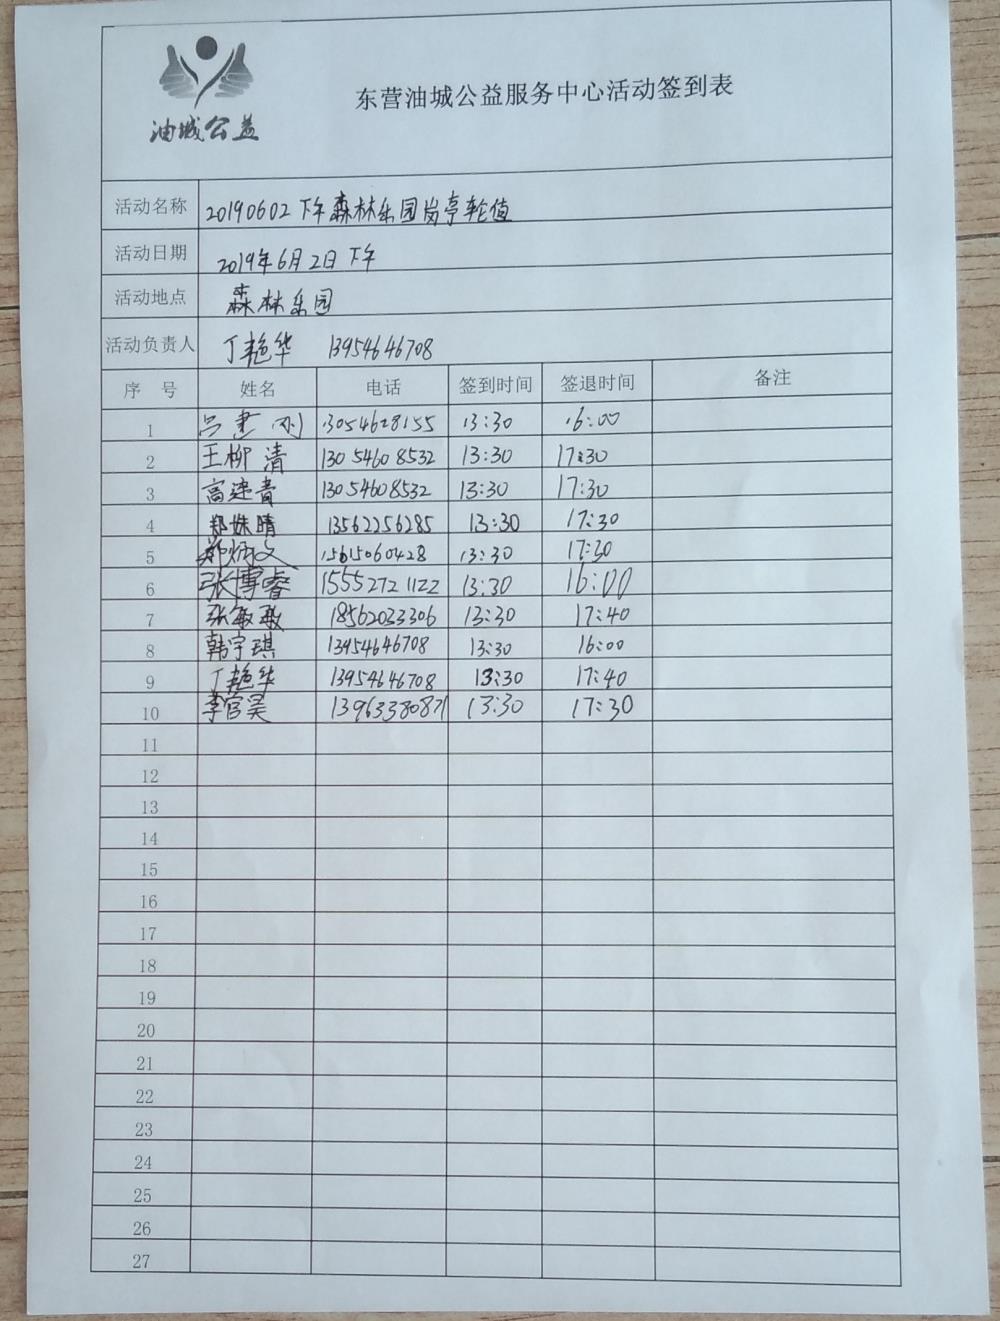 油城公益
东营油城公益服务中心活动签到表
活动名称 20190602下午森林乐园岗亭轮值
活动日期 2019年6月2日下午
活动地点 森林乐园
活动负责人 丁艳华 13954646708
序 号 姓名 电话 签到时间 签退时间 备注
1 吕建刚 13054628155 13:30 16:00
2 王柳清 13054608532 13:30 17:30
3 高速青 13054608532 13:30 17:30
4 郑姝晴 13562256285 13:30 17:30
5 郑炳文 15615060428 13:30 17:30
6 张博睿 15552721122 13:30 16:00
7 张敏敏 18562033306 13:30 17:40
8 韩宇琪 13954646708 13:30 16:00
9 丁艳华 13954646708 13:30 17:40
10 李官昊 13963380871 13:30 17:30
11
12
13
14
15
16
17
18
19
20
21
22
23
24
25
26
27